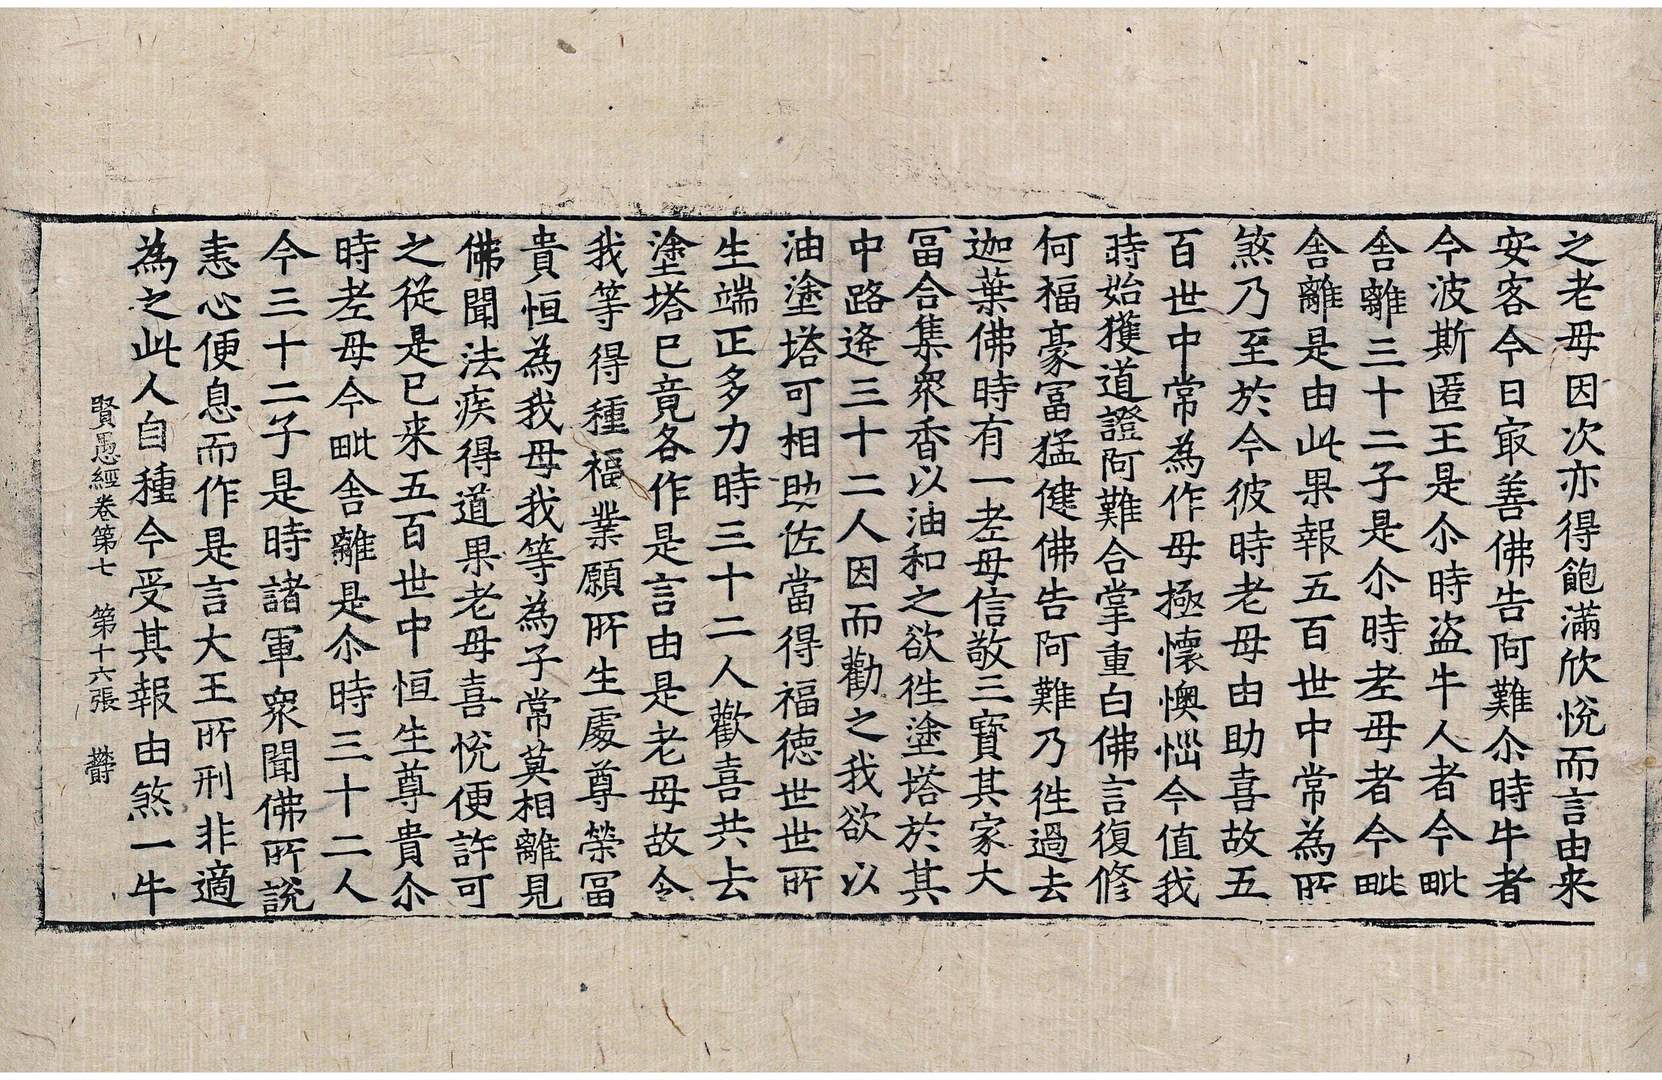 之老母因次亦得飽滿欣悅而言由来
安客今日㝡善佛告阿難尒時牛者
今波斯匿王是尒時盜牛人者今毗
舍離三十二子是尒時老母者今毗
舍離是由此果報五百世中常為所
煞乃至於今彼時老母由助喜故五
百世中常為作母極懷懊惱今值我
時始獲道證阿難合掌重白佛言復修
何福豪冨猛健佛告阿難乃徃過去
迦葉佛時有一老母信敬三寳其家大
冨合集衆香以油和之欲徃塗塔於其
中路逢三十二人因而勸之我欲以
油塗塔可相助佐當得福德世世所
生端正多力時三十二人歡喜共去
塗塔已竟各作是言由是老母故令
我等得種福業願所生處尊榮冨
貴恒為我母我等為子常莫相離見
佛聞法疾得道果老母喜悅便許可
之從是已来五百世中恒生尊貴尒
時老母今毗舍離是尒時三十二人
今三十二子是時諸軍衆聞佛所說
恚心便息而作是言大王所刑非適
為之此人自種今受其報由煞一牛
賢愚經卷第七 第十六張 欝